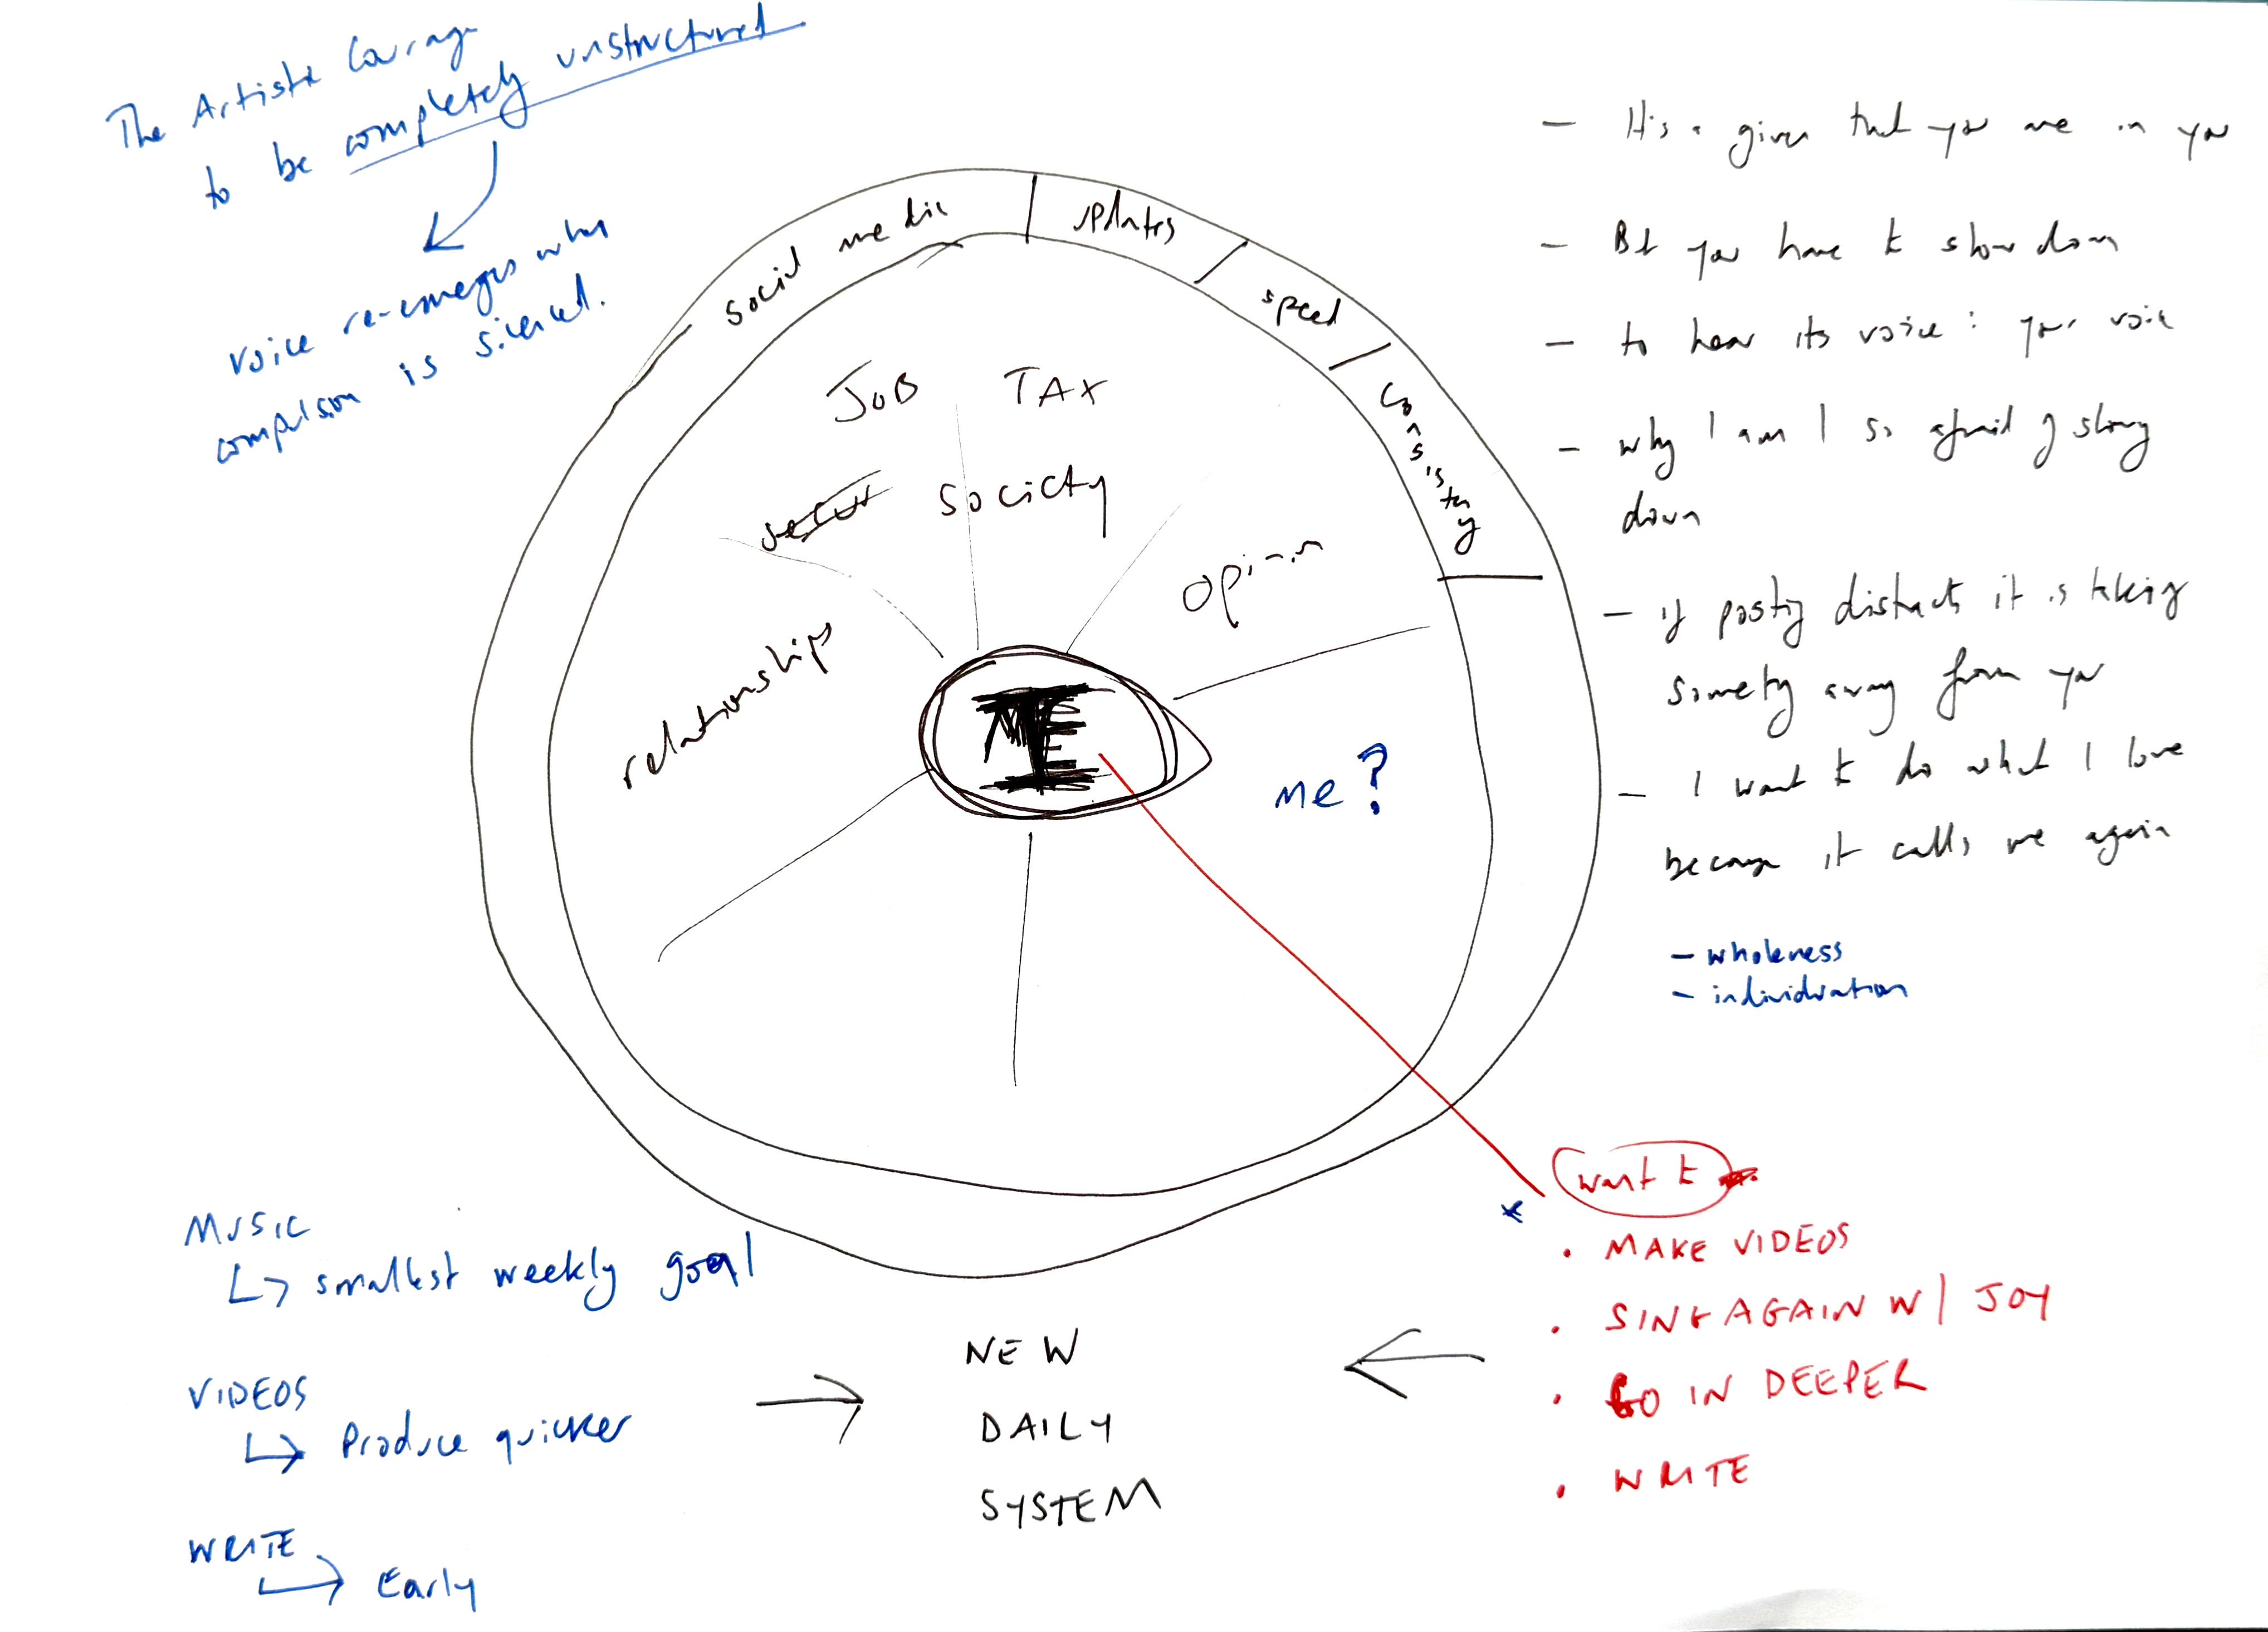 The Artistic Courage
to be completely unstructured
voice re-emerges when
compulsion is silenced.
social media
updates
speed
Consistency
JOB TAX
society
opinion
relationship
ME
me?
- It's a given that you are in you
- But you have to slow down
- to hear its voice: your voice
- why I am I so afraid of slowing
down
- if posting distracts it is taking
something away from you
- I want to do what I love
because it calls me again
- wholeness
- individuation
want to
• MAKE VIDEOS
• SING AGAIN W/ JOY
• GO IN DEEPER
• WRITE
MUSIC
↳ smallest weekly goal
VIDEOS
↳ Produce quicker
WRITE
↳ Early
NEW
DAILY
SYSTEM